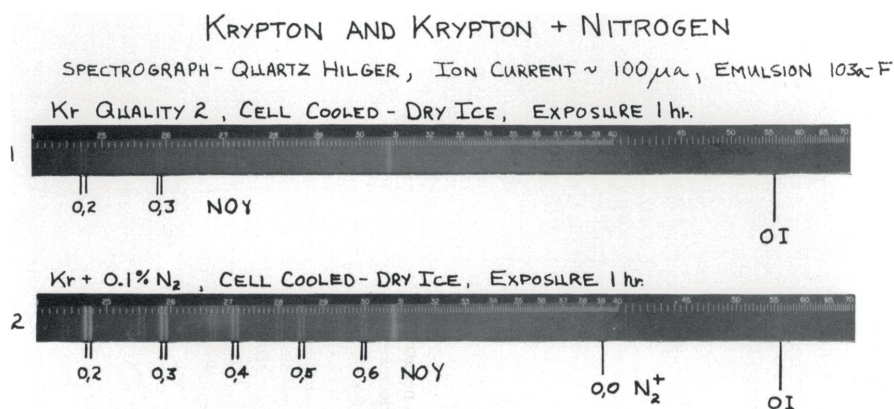 KRYPTON AND KRYPTON + NITROGEN
SPECTROGRAPH-QUARTZ HILGER, ION CURRENT ~ 100μa, EMULSION 103a-F
Kr QUALITY 2, CELL COOLED-DRY ICE, EXPOSURE 1 hr.
25 26 27 28 29 30 31 32 33 34 35 36 37 38 39 40 45 50 55 60 65 70
1
0,2 0,3 NOγ OI
Kr + 0.1% N₂, CELL COOLED-DRY ICE, EXPOSURE 1 hr.
25 26 27 28 29 30 31 32 33 34 35 36 37 38 39 40 45 50 55 60 65 70
2
0,2 0,3 0,4 0,5 0,6 NOγ 0,0 N₂⁺ OI